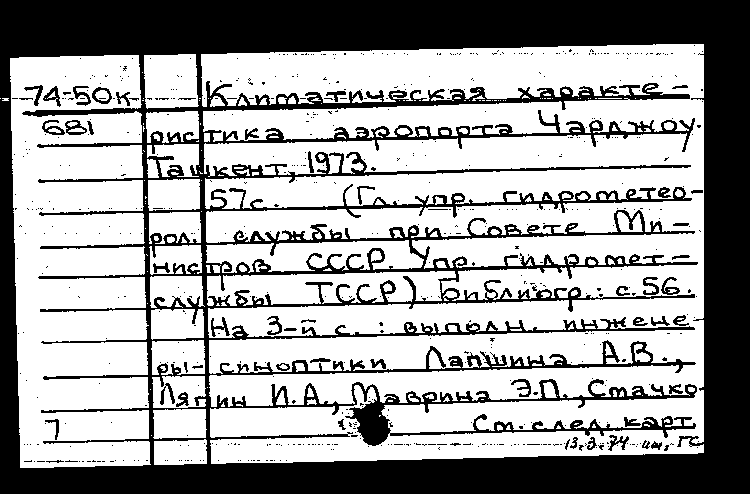 74-50к Климатическая характе-
681 ристика аэропорта Чарджоу.
Ташкент, 1973.
57с. (Гл. упр. гидрометео-
рол. службы при Совете Ми-
нистров СССР. Упр. гидромет-
службы ТССР). Библиогр.: с. 56.
На 3-й с.: выполн. инжене-
ры-синоптики Лапшина А.В.,
Ляпин И.А., Маврина Э.П., Стачко-
7 См. след. карт.
13.3.74 ГС